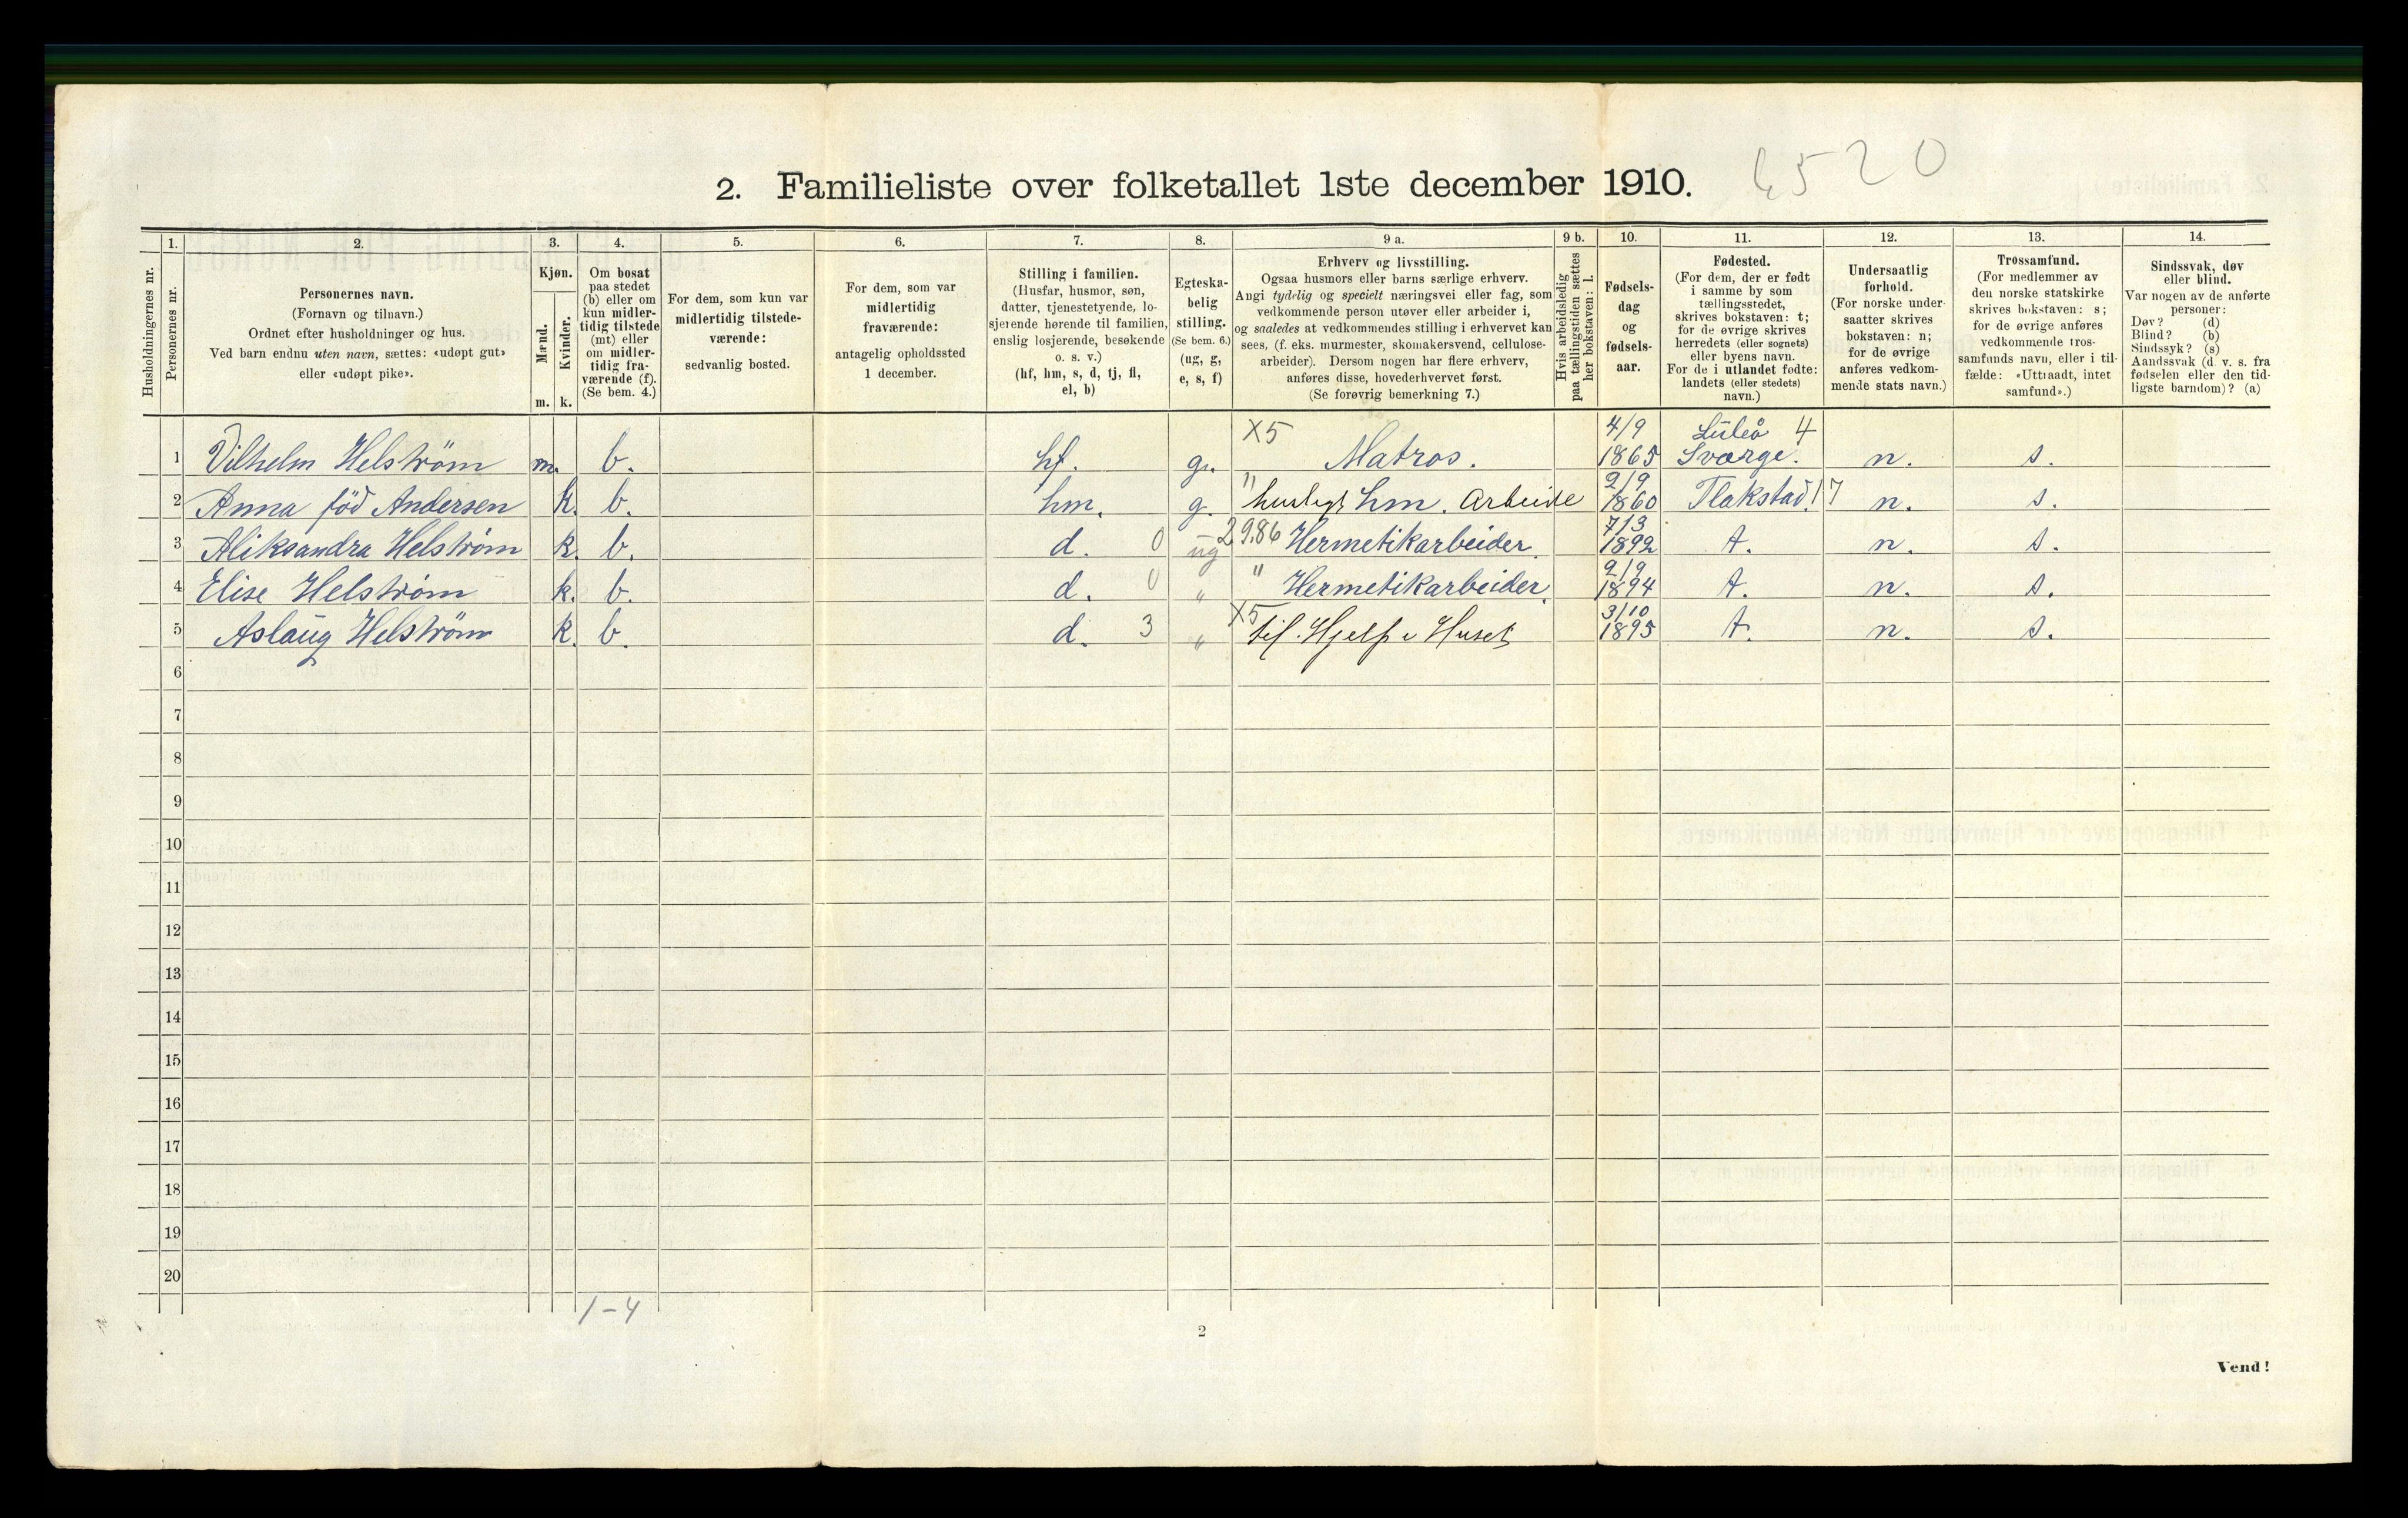 6520
2. Familieliste over folketallet 1ste december 1910.
1. 2. 3. 4. 5. 6. 7. 8. 9 a. 9 b. 10. 11. 12. 13. 14.
Husholdningernes nr.
Personernes nr.
Personernes navn.
(Fornavn og tilnavn.)
Ordnet efter husholdninger og hus.
Ved barn endnu uten navn, sættes: «udøpt gut»
eller «udøpt pike».
Kjøn.
Mænd.
Kvinder.
m. k.
Om bosat
paa stedet
(b) eller om
kun midler-
tidig tilstede
(mt) eller
om midler-
tidig fra-
værende (f).
(Se bem. 4.)
For dem, som kun var
midlertidig tilstede-
værende:
sedvanlig bosted.
For dem, som var
midlertidig
fraværende:
antagelig opholdssted
1 december.
Stilling i familien.
(Husfar, husmor, søn,
datter, tjenestetyende, lo-
sjerende hørende til familien,
enslig losjerende, besøkende
o. s. v.)
(hf, hm, s, d, tj, fl,
el, b)
Egteska-
belig
stilling.
(Se bem. 6.)
(ug, g,
e, s, f)
Erhverv og livsstilling.
Ogsaa husmors eller barns særlige erhverv.
Angi tydelig og specielt næringsvei eller fag, som
vedkommende person utøver eller arbeider i,
og saaledes at vedkommendes stilling i erhvervet kan
sees, (f. eks. murmester, skomakersvend, cellulose-
arbeider). Dersom nogen har flere erhverv,
anføres disse, hovederhvervet først.
(Se forøvrig bemerkning 7.)
Hvis arbeidsledig
paa tællingstiden sættes
her bokstaven: l.
Fødsels-
dag
og
fødsels-
aar.
Fødested.
(For dem, der er født
i samme by som
tællingsstedet,
skrives bokstaven: t;
for de øvrige skrives
herredets (eller sognets)
eller byens navn.
For de i utlandet fødte:
landets (eller stedets)
navn.)
Undersaatlig
forhold.
(For norske under-
saatter skrives
bokstaven: n;
for de øvrige
anføres vedkom-
mende stats navn.)
Trossamfund.
(For medlemmer av
den norske statskirke
skrives bokstaven: s;
for de øvrige anføres
vedkommende tros-
samfunds navn, eller i til-
fælde: «Uttraadt, intet
samfund».)
Sindssvak, døv
eller blind.
Var nogen av de anførte
personer:
Døv? (d)
Blind? (b)
Sindssyk? (s)
Aandssvak (d. v. s. fra
fødselen eller den tid-
ligste barndom)? (a)
X5 4/9 Luleå 4
1 Vilhelm Helström m. b. hf. g. Matros. 1865 Sværge. n. s.
" 2/9
2 Anna föd Andersen k. b. hm. g. husligt hm. Arbeide 1860 Flakstad! 7 n. s.
7/3
3 Aliksandra Helström k. b. d. 0 ug 2986 Hermetikarbeider. 1892 t. n. s.
2/9
4 Elise Helström k. b. d. 0 " " Hermetikarbeider. 1894 t. n. s.
X5 3/10
5 Aslaug Helström k. b. d. 3 " til Hjelp i Huset 1895 t. n. s.
6
7
8
9
10
11
12
13
14
15
16
17
18
19
20
1-4
2
Vend!